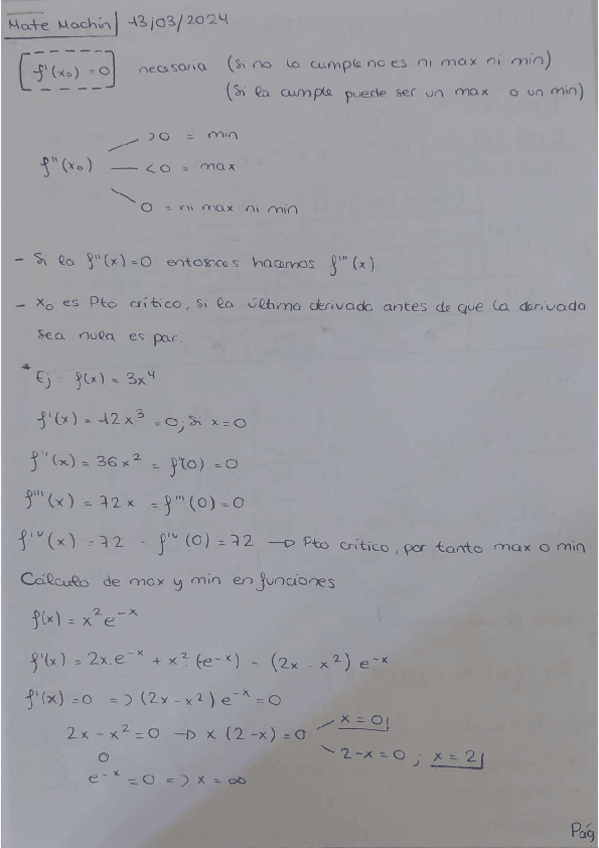 Mate Machin | 13/03/2024
f'(x₀) = 0 necesaria (Si no la cumple no es ni max ni min)
(Si la cumple puede ser un max o un min)
>0 = min
f''(x₀) <0 = max
0 = ni max ni min
- Si la f''(x)=0 entonces hacemos f'''(x)
- x₀ es Pto crítico, si la última derivada antes de que la derivada
sea nula es par.
* Ej: f(x) = 3x⁴
f'(x) = 12x³ = 0; si x=0
f''(x) = 36x² = f''(0) = 0
f'''(x) = 72x = f'''(0) = 0
f'ᵛ(x) = 72 - f'ᵛ(0) = 72 → Pto crítico, por tanto max o min
Cálculo de max y min en funciones
f(x) = x²e⁻ˣ
f'(x) = 2x.e⁻ˣ + x².(-e⁻ˣ) = (2x - x²) e⁻ˣ
f'(x) = 0 => (2x - x²) e⁻ˣ = 0
2x - x² = 0 → x (2-x) = 0 x = 0
2-x = 0 ; x = 2
o
e⁻ˣ = 0 => x = ∞
Pág